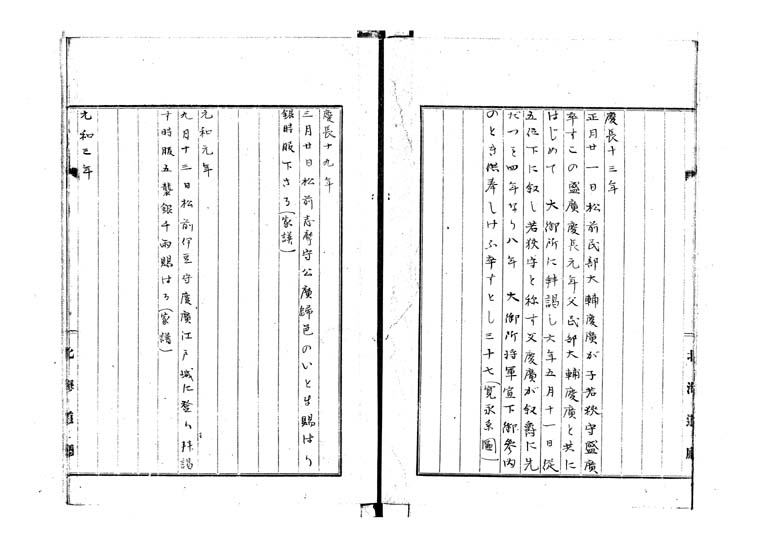 慶長十三年
正月廿一日松前民部大輔慶廣が子若狹守盛廣
卒すこの盛廣慶長元年父民部大輔慶廣と共に
はじめて 大御所に拜謁し六年五月十一日従
五位下に叙し若狹守と称す父慶廣が叙爵に先
だつこと四年なり八年 大御所将軍宣下御参内
のとき供奉しけふ卒すとし三十七(寛永系圖)
北海道廳
慶長十九年
三月廿日松前志摩守公廣歸邑のいとま賜はり
銀時服下さる(家譜)
元和元年
九月十三日松前伊豆守慶廣江戸城に登り拜謁
す時服五襲銀千両賜はる(家譜)
元和三年
北海道廳